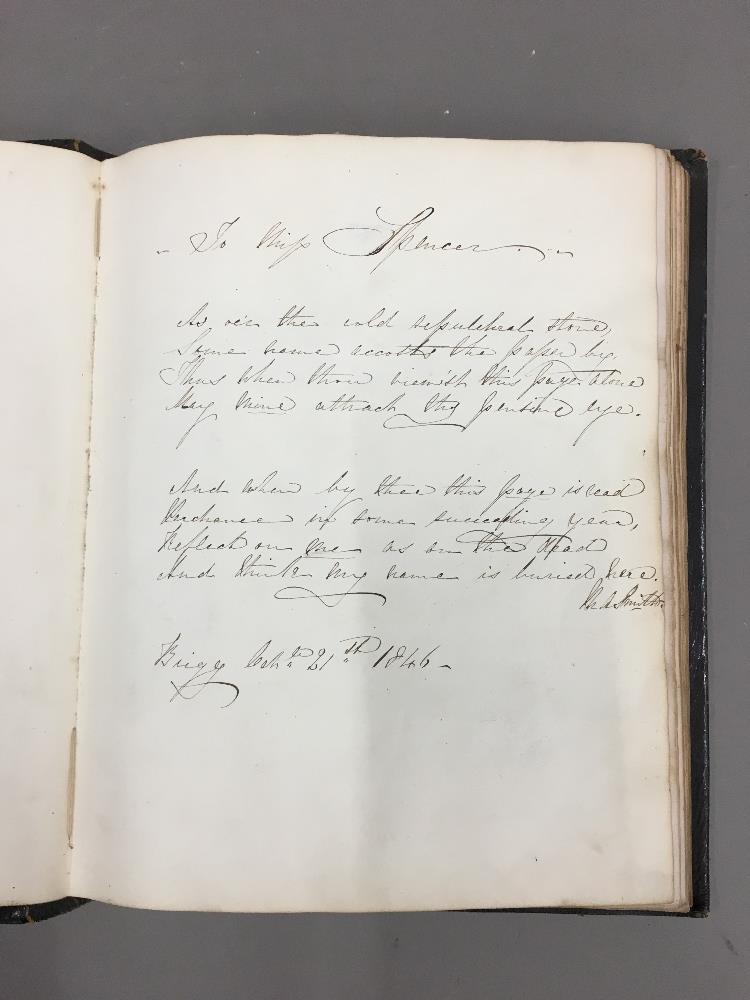 To Miss Spencer
As o'er the cold sepulchral stone,
Some name accosts the passer by,
Thus when thou viewest this page alone
May mine attract thy pensive eye.
And when by thee this page is read
Perchance in some succeeding year,
Reflect on me as on the dead
And think my name is buried here.
Smith
Brigg 21st 1846